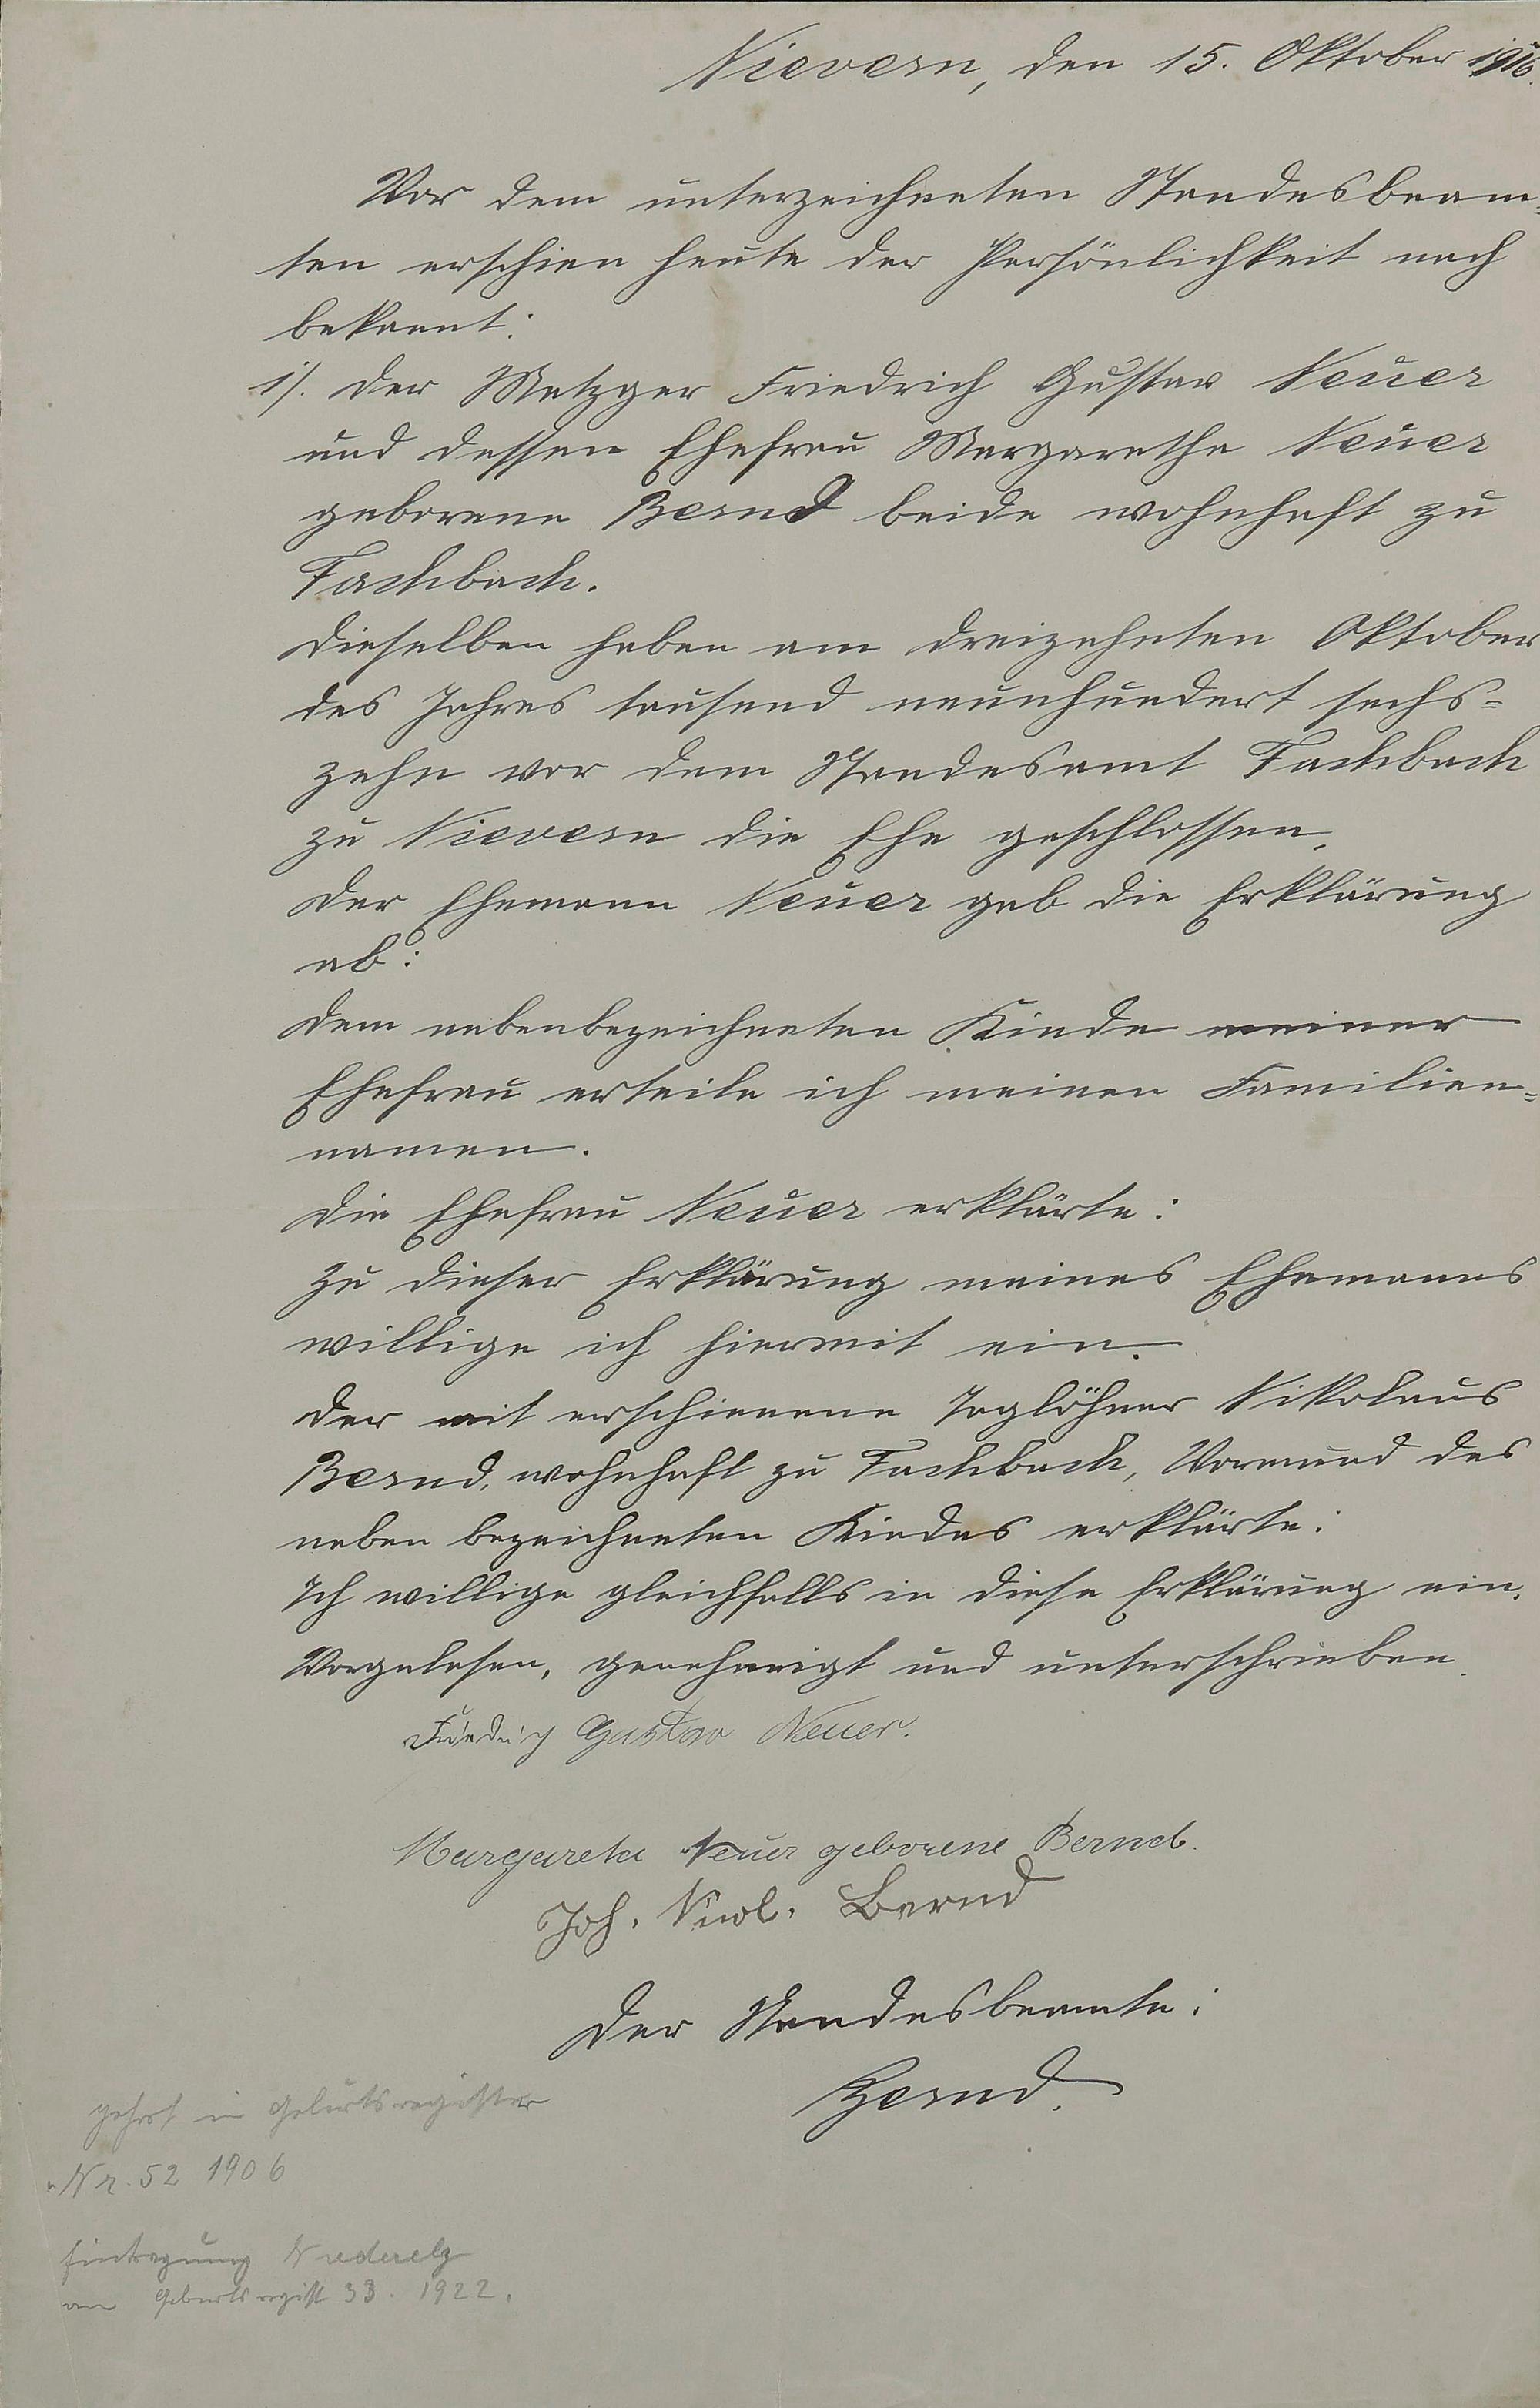 Nievern, den 15. Oktober 1916.
Vor dem unterzeichneten Standesbeam-
ten erschien heute der Persönlichkeit nach
bekannt:
1). Der Metzger Friedrich Gustav Neuer
und dessen Ehefrau Margarethe Neuer
geborene Bernd beide wohnhaft zu
Fachbach.
Dieselben haben am dreizehnten Oktober
des Jahres tausend neunhundert sechs-
zehn vor dem Standesamt Fachbach
zu Nievern die Ehe geschlossen.
Der Ehemann Neuer gab die Erklärung
ab:
Dem nebenbezeichneten Kinde meiner
Ehefrau erteile ich meinen Familien-
namen.
Die Ehefrau Neuer erklärte:
Zu dieser Erklärung meines Ehemannes
willige ich hiermit ein.
Der mit erschienene Taglöhner Nikolaus
Bernd, wohnhaft zu Fachbach, Vormund des
neben bezeichneten Kindes erklärte:
Ich willige gleichfalls in diese Erklärung ein.
Vorgelesen, genehmigt und unterschrieben.
Friedrich Gustav Neuer.
Margareta Neuer geborene Bernd.
Joh. Nicol. Bernd
Der Standesbeamte:
in Geburtsregister
Nr. 52 1906
Eintragung
Geburtsregist 33. 1922.